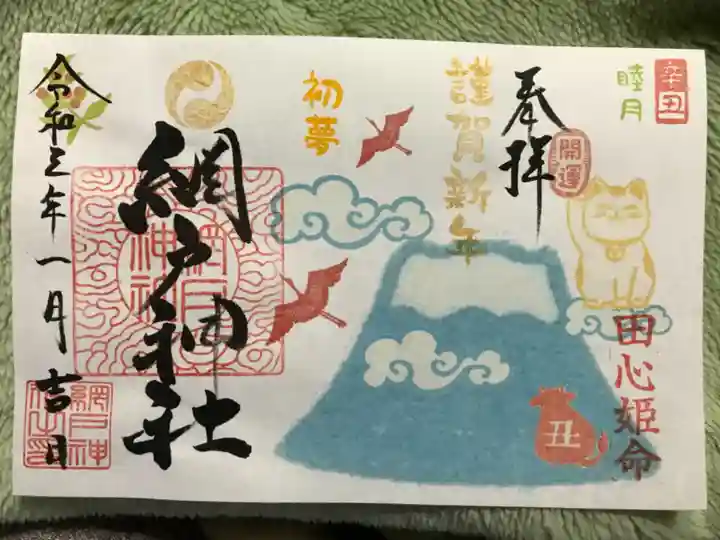 辛丑
睦月
奉拝
開運
田心姫命
謹賀新年
初夢
丑
網戸神社
網戸神社
令和三年一月吉日